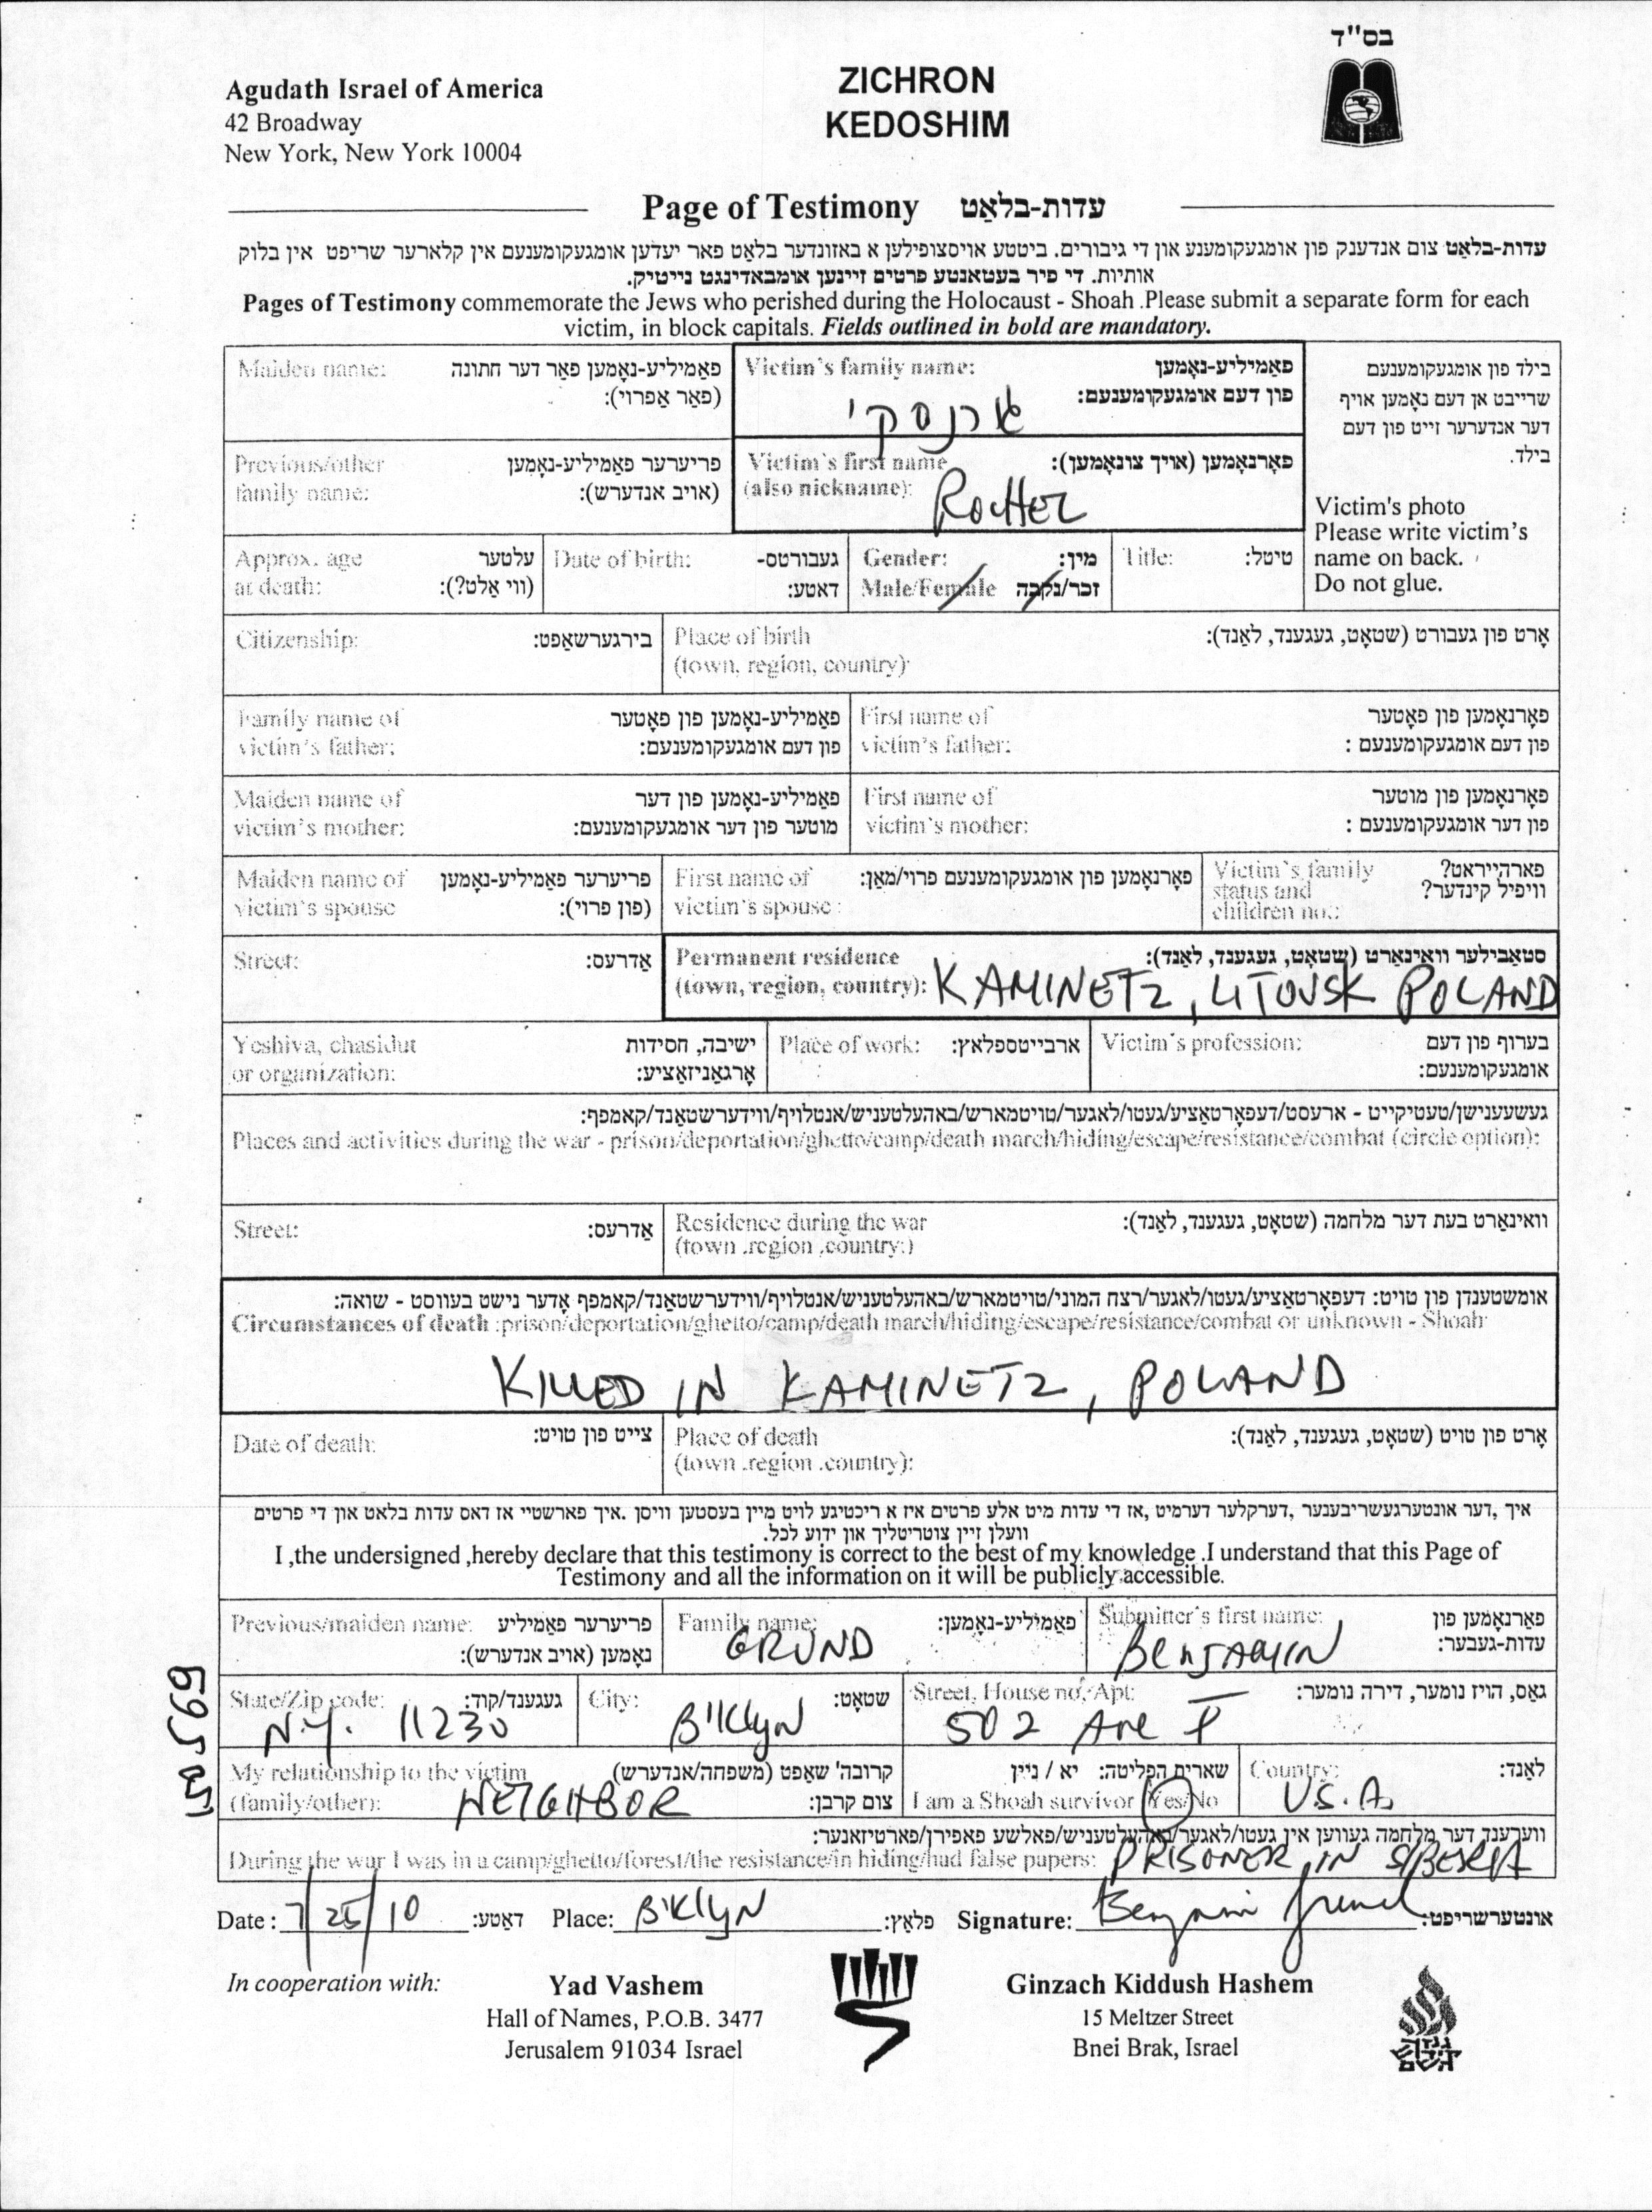 בס"ד
Agudath Israel of America
42 Broadway
New York, New York 10004
ZICHRON
KEDOSHIM
Page of Testimony עדות-בלאַט
עדות-בלאַט צום אנדענק פון אומגעקומענע און די גיבורים. ביטטע אויסצופילען א באזונדער בלאַט פאר יעדען אומגעקומענעם אין קלארער שריפט אין בלוק
אותיות. די פיר בעטאנטע פרטים זיינען אומבאדינגט נייטיק.
Pages of Testimony commemorate the Jews who perished during the Holocaust - Shoah .Please submit a separate form for each
victim, in block capitals. Fields outlined in bold are mandatory.
Maiden name: פאַמיליע-נאָמען פאַר דער חתונה
(פאַר אַפרוי):
Victim's family name: פאַמיליע-נאָמען
פון דעם אומגעקומענעם:
בילד פון אומגעקומענעם
שרייבט אן דעם נאָמען אויף
דער אנדערער זייט פון דעם
בילד.
Victim's photo
Please write victim's
name on back.
Do not glue.
Previous/other פריערער פאַמיליע-נאָמען
family name: (אויב אנדערש):
Victim's first name פאָרנאָמען (אויך צונאָמען):
(also nickname): Rochel
Approx. age עלטער
at death: (ווי אַלט?):
Date of birth: געבורטס-
דאטע:
Gender: מין:
Male/Female זכר/נקבה
Title: טיטל:
Citizenship: בירגערשאַפט:
Place of birth אָרט פון געבורט (שטאָט, געגענד, לאַנד):
(town, region, country)
Family name of פאַמיליע-נאָמען פון פאָטער
victim's father: פון דעם אומגעקומענעם:
First name of פאָרנאָמען פון פאָטער
victim's father: פון דעם אומגעקומענעם :
Maiden name of פאַמיליע-נאָמען פון דער
victim's mother: מוטער פון דער אומגעקומענעם:
First name of פאָרנאָמען פון מוטער
victim's mother: פון דער אומגעקומענעם :
Maiden name of פריערער פאַמיליע-נאָמען
victim's spouse (פון פרוי):
First name of פאָרנאָמען פון אומגעקומענעם פרוי/מאַן:
victim's spouse :
Victim's family פארהייראט?
status and וויפיל קינדער?
children no.:
Street: אַדרעס:
Permanent residence סטאַבילער וואינאָרט (שטאָט, געגענד, לאַנד):
(town, region, country): KAMINETZ, LITOVSK POLAND
Yeshiva, chasidut ישיבה, חסידות
or organization: אָרגאַניזאַציע:
Place of work: ארבייטספלאץ:
Victim's profession: בערוף פון דעם
אומגעקומענעם:
געשעענישן/טעטיקייט - ארעסט/דעפאָרטאַציע/געטו/לאגער/טויטמארש/באהעלטעניש/אנטלויף/ווידערשטאַנד/קאמפף:
Places and activities during the war - prison/deportation/ghetto/camp/death march/hiding/escape/resistance/combat (circle option):
Street: אַדרעס:
Residence during the war וואינאָרט בעת דער מלחמה (שטאָט, געגענד, לאַנד):
(town .region .country:)
אומשטענדן פון טויט: דעפאָרטאַציע/געטו/לאגער/רצח המוני/טויטמארש/באהעלטעניש/אנטלויף/ווידערשטאַנד/קאמפף אָדער נישט בעווסט - שואה:
Circumstances of death :prison/deportation/ghetto/camp/death march/hiding/escape/resistance/combat or unknown - Shoah
KILLED IN KAMINETZ, POLAND
Date of death: צייט פון טויט:
Place of death אָרט פון טויט (שטאָט, געגענד, לאַנד):
(town .region .country):
איך ,דער אונטערגעשריבענער ,דערקלער דערמיט ,אז די עדות מיט אלע פרטים איז א ריכטיגע לויט מיין בעסטען וויסן .איך פארשטיי אז דאס עדות בלאט און די פרטים
וועלן זיין צוטריטליך און ידוע לכל.
I ,the undersigned ,hereby declare that this testimony is correct to the best of my knowledge .I understand that this Page of
Testimony and all the information on it will be publicly accessible.
Previous/maiden name: פריערער פאַמיליע
נאָמען (אויב אנדערש):
Family name: פאַמיליע-נאָמען:
GRUND
Submitter's first name: פאָרנאָמען פון
עדות-געבער:
BENJAMIN
State/Zip code: געגענד/קוד:
N.Y. 11230
City: שטאָט:
B'Klyn
Street, House no, Apt: גאַס, הויז נומער, דירה נומער:
502 Ave
My relationship to the victim קרובה' שאַפט (משפחה/אנדערש)
(family/other): NEIGHBOR צום קרבן:
שארית הפליטה: יא / ניין
I am a Shoah survivor Yes/No
Country: לאַנד:
U.S.A.
ווערענד דער מלחמה געווען אין געטו/לאגער/באהעלטעניש/פאלשע פאפירן/פארטיזאנער:
During the war I was in a camp/ghetto/forest/the resistance/in hiding/had false papers: PRISONER IN SIBERIA
Date : 7/25/10 דאַטע: Place: B'Klyn פלאַץ: Signature: Benjamin Grund אונטערשריפט:
In cooperation with:
Yad Vashem
Hall of Names, P.O.B. 3477
Jerusalem 91034 Israel
Ginzach Kiddush Hashem
15 Meltzer Street
Bnei Brak, Israel
גנזך
קידוש
השם